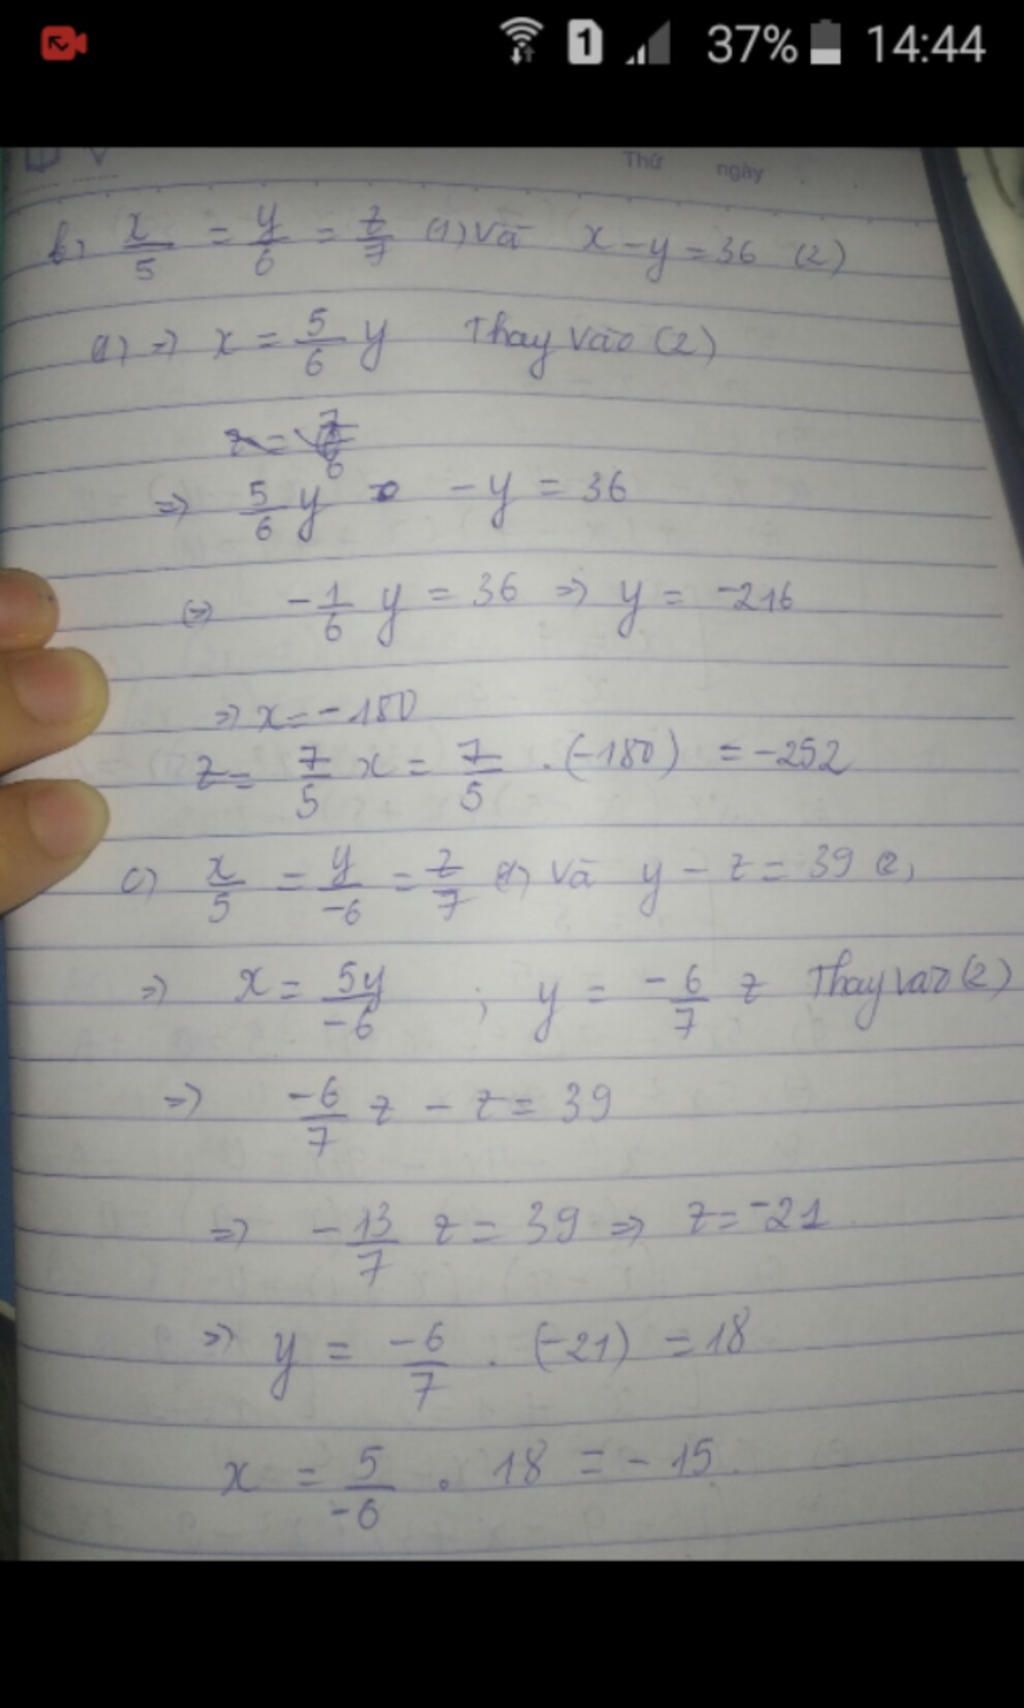 1 37% 14:44
Thứ ngày
b, x/5 = y/6 = z/7 (1) và x - y = 36 (2)
(1) => x = 5/6 y Thay vào (2)
=> 5/6 y - y = 36
<=> -1/6 y = 36 => y = -216
=> x = -180
z = 7/5 x = 7/5 . (-180) = -252
c) x/5 = y/-6 = z/7 (1) và y - z = 39 (2)
=> x = 5y/-6 ; y = -6/7 z Thay vào (2)
=> -6/7 z - z = 39
=> -13/7 z = 39 => z = -21
=> y = -6/7 . (-21) = 18
x = 5/-6 . 18 = -15.